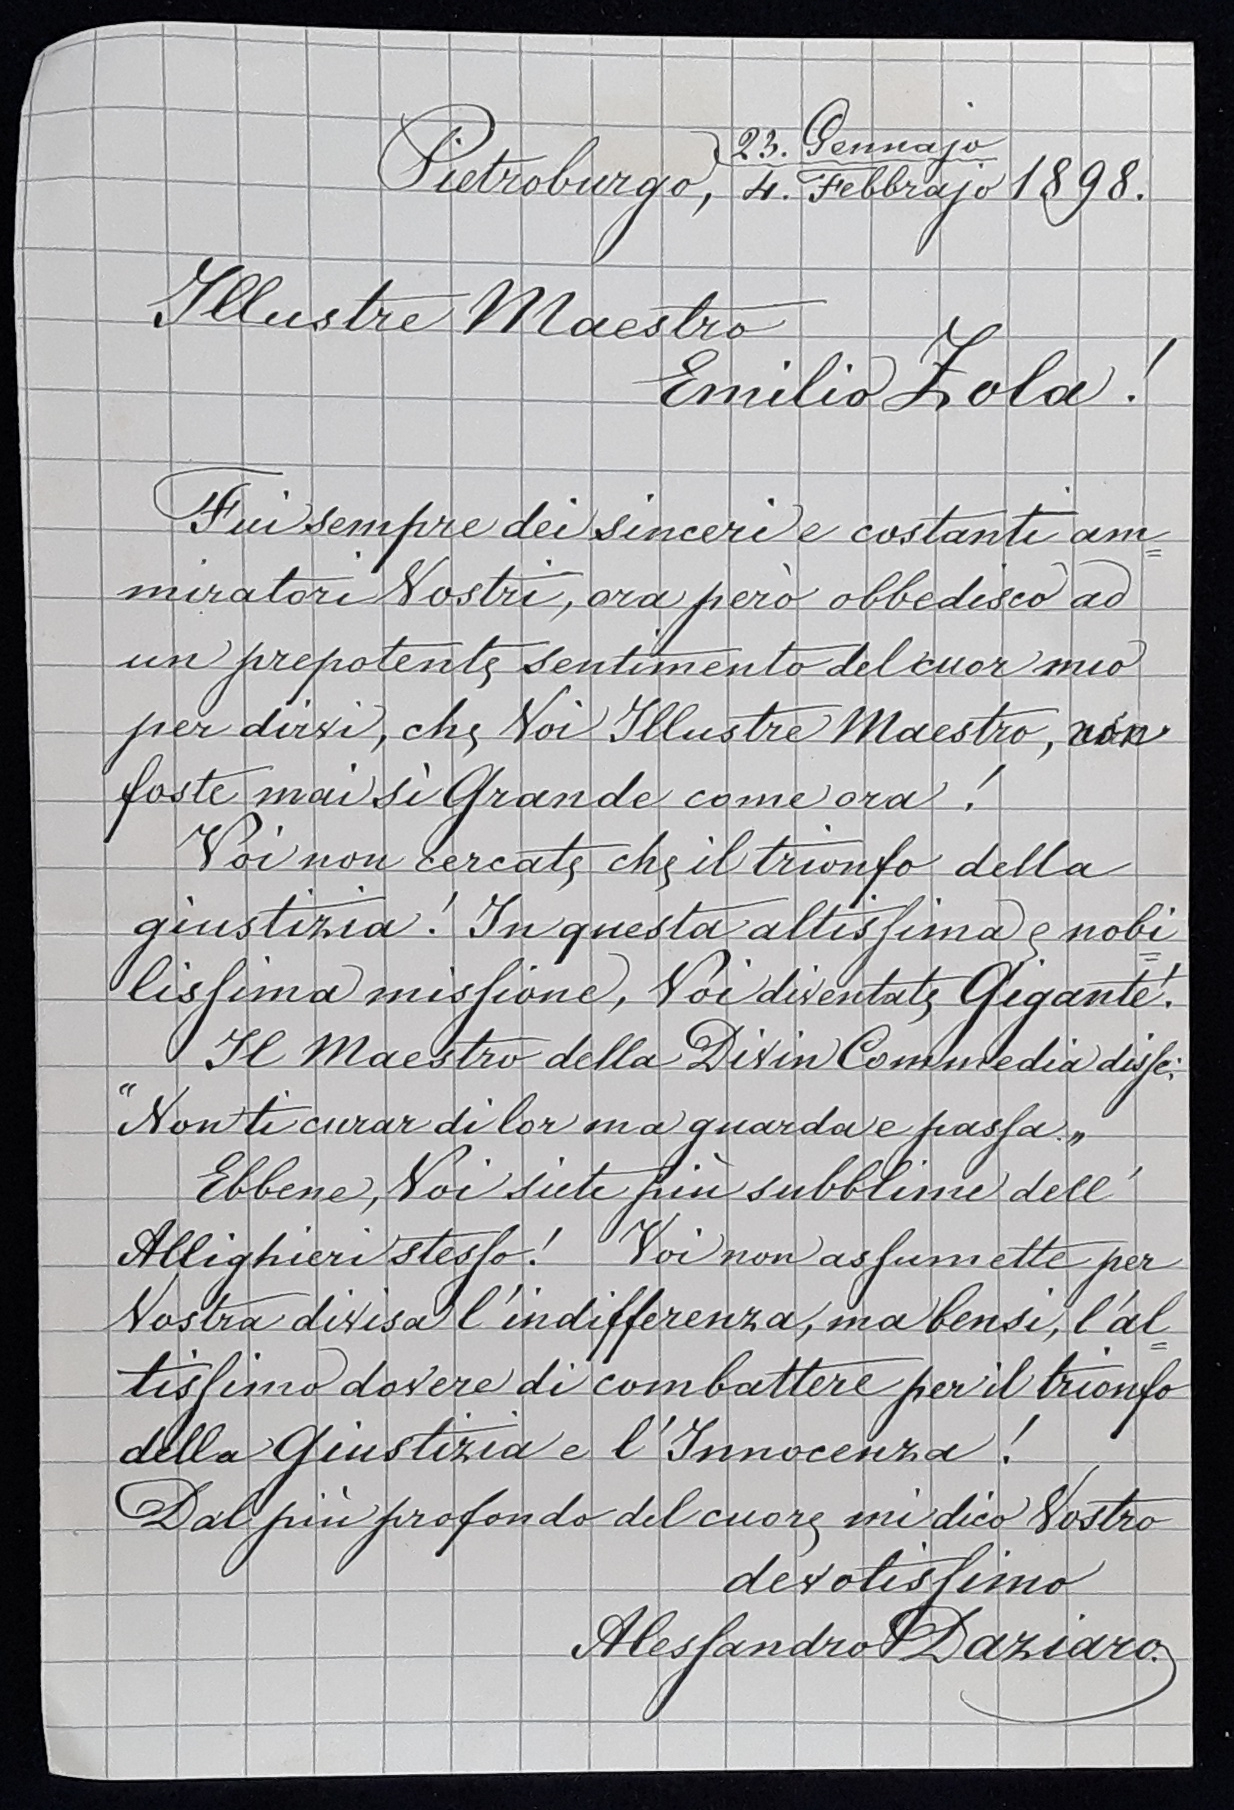 23. Gennajo
Pietroburgo, 4. Febbrajo 1898.
Illustre Maestro
Emilio Zola!
Fui sempre dei sinceri e costanti am=
miratori Vostri, ora però obbedisco ad
un prepotente sentimento del cuor mio
per dirvi, che Voi Illustre Maestro, non
foste mai sì Grande come ora!
Voi non cercate che il trionfo della
giustizia! In questa altissima e nobi=
lissima missione, Voi diventate Gigante!
Il Maestro della Divin Commedia disse:
"Non ti curar di lor ma guarda e passa.„
Ebbene, Voi siete più subblime dell'
Allighieri stesso! Voi non assumette per
Vostra divisa l'indifferenza, ma bensi, l'al=
tissimo dovere di combattere per il trionfo
della Giustizia e l'Innocenza!
Dal più profondo del cuore mi dico Vostro
devotissimo
Alessandro Daziaro.